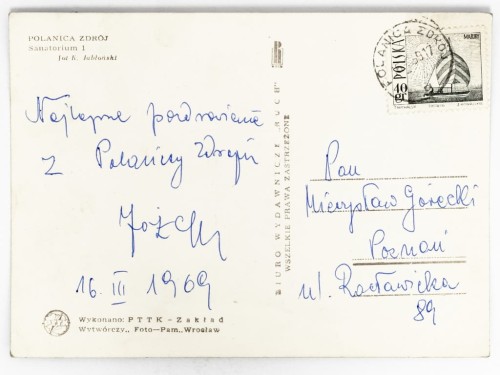 POLANICA ZDRÓJ
Sanatorium I
fot K. Jabłoński
Najlepsze pozdrowienia
z Polanicy Zdroju
16. III 1969
Wykonano: PTTK – Zakład
Wytwórczy „Foto-Pam" Wrosław
BIURO WYDAWNICZE „RUCH"
WSZELKIE PRAWA ZASTRZEŻONE
POLANICA ZDRÓJ
POLSKA
40 gr
Pan
Mieczysław Górecki
Poznań
ul. Racławicka
89